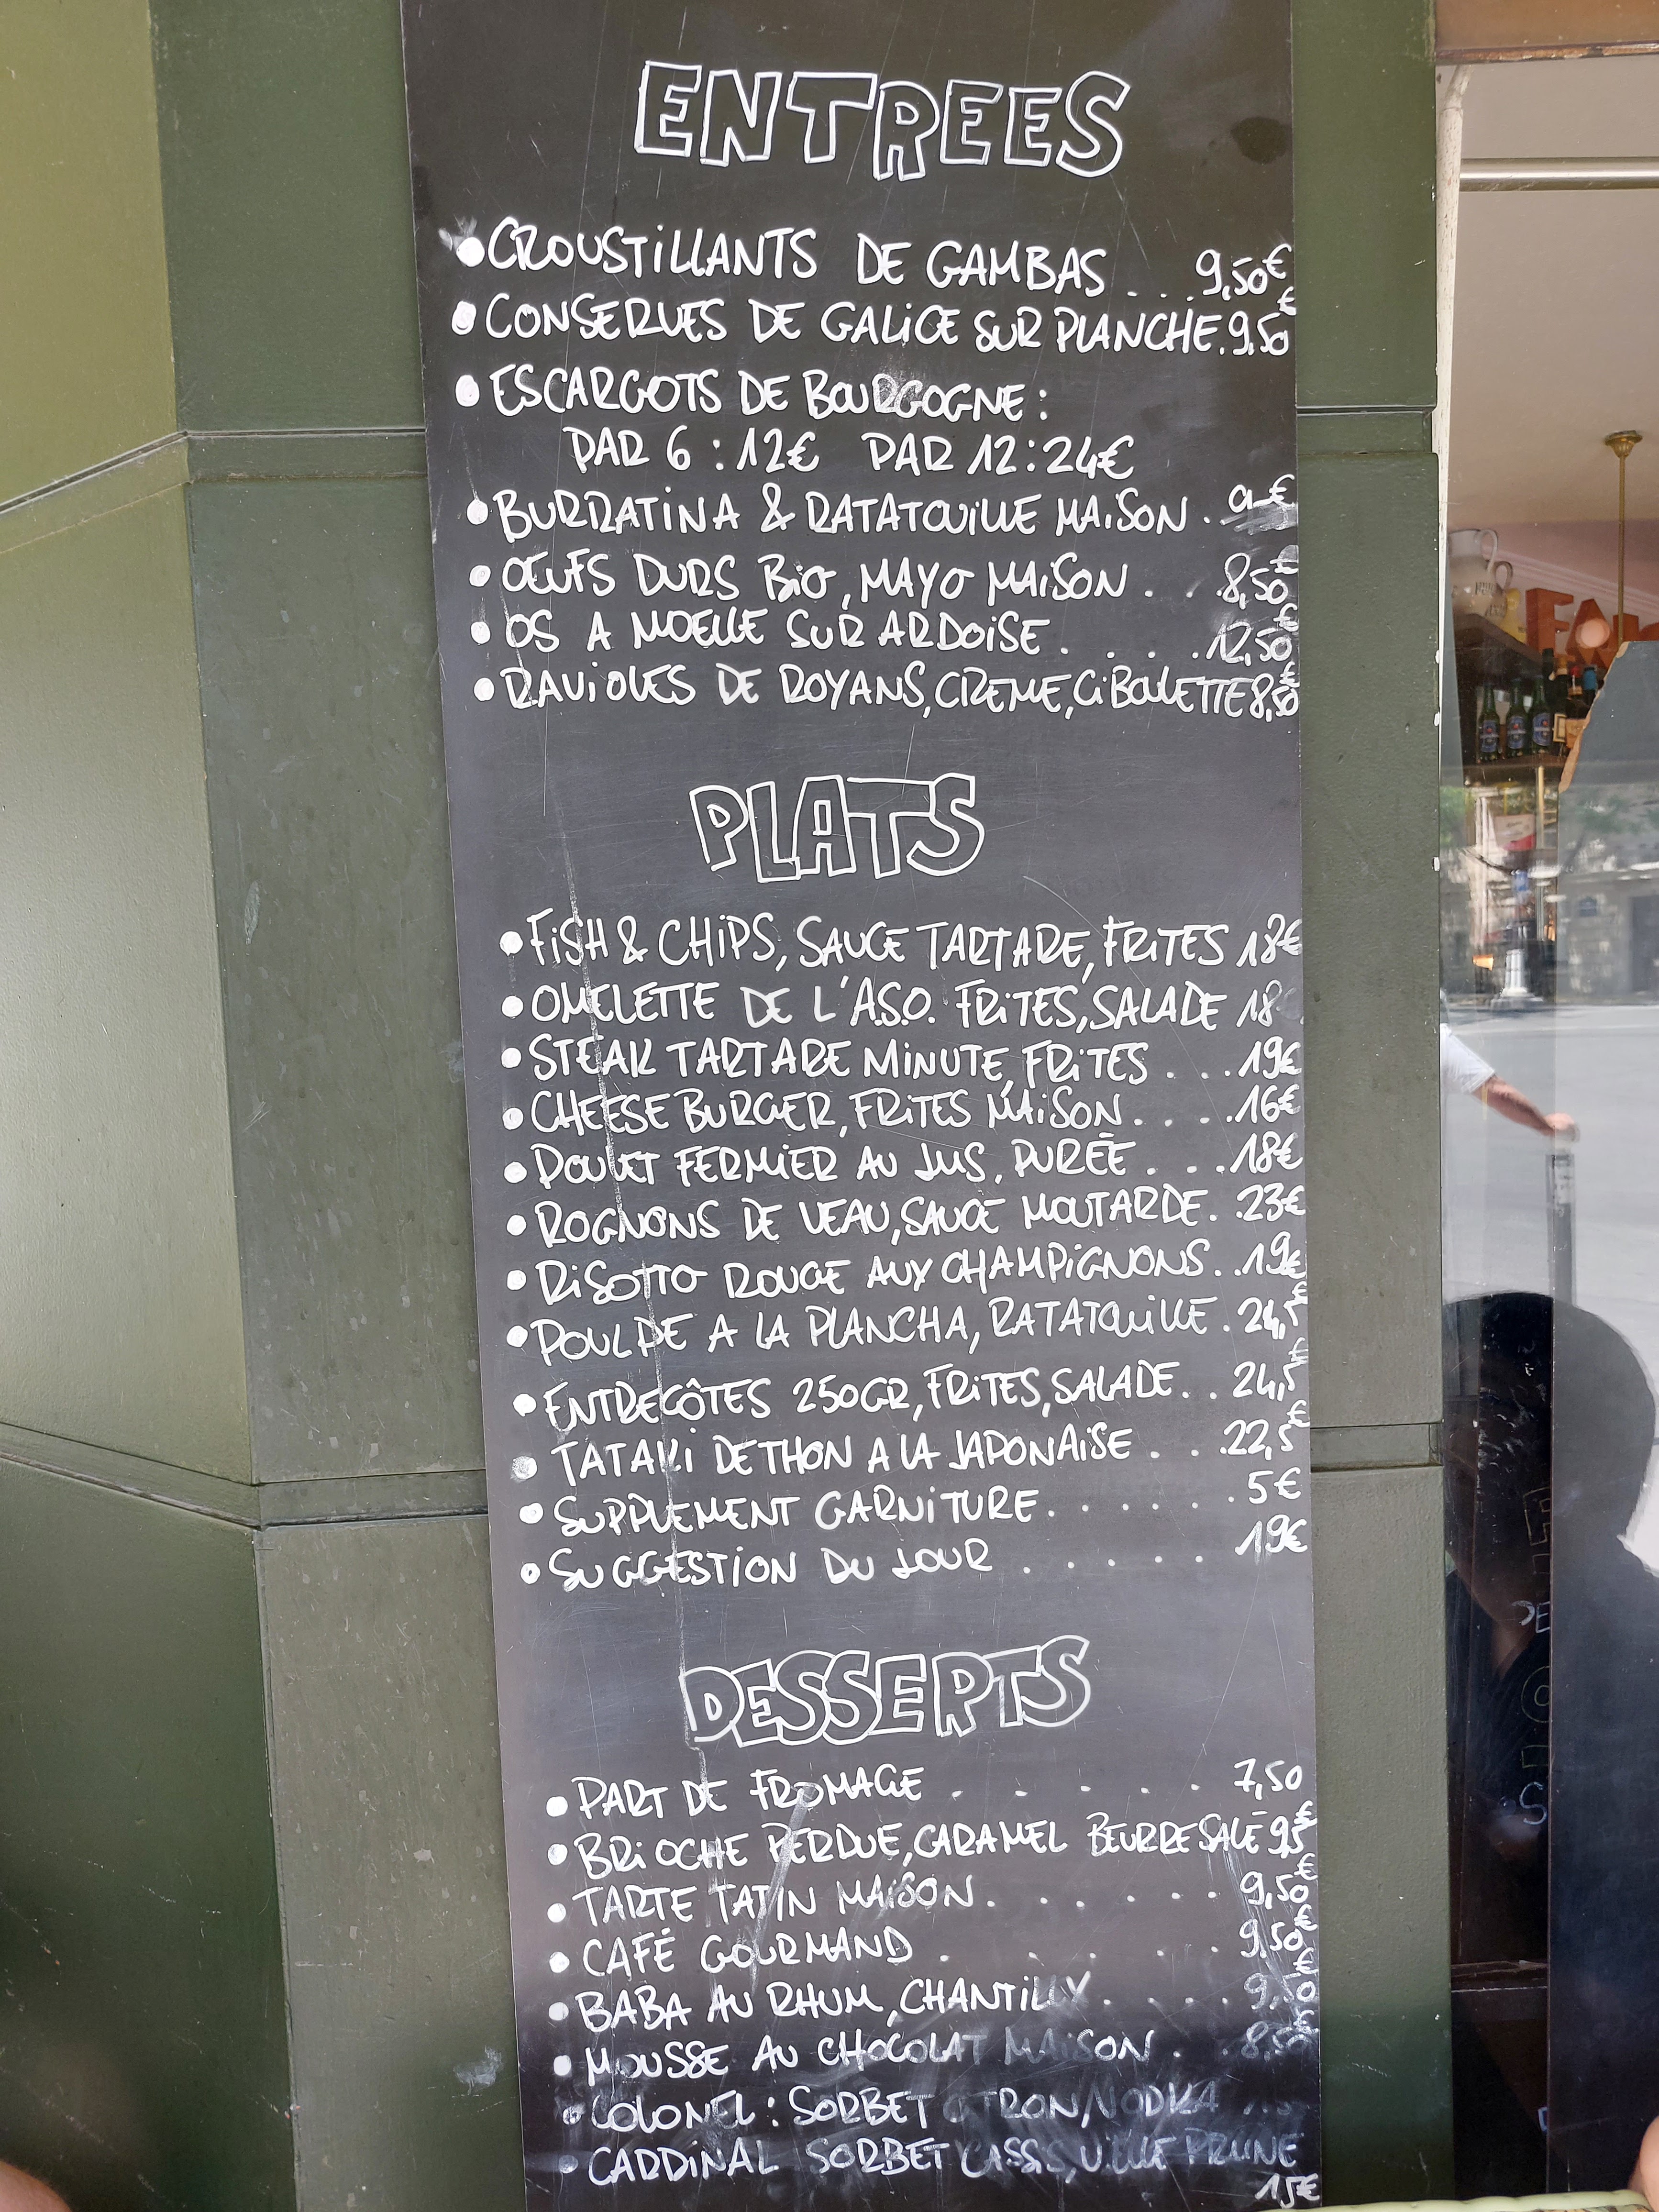 ENTREES
• CROUSTILLANTS DE GAMBAS . . . 9,50€
• CONSERVES DE GALICE SUR PLANCHE. 9,50€
• ESCARGOTS DE BOURGOGNE :
PAR 6 : 12€ PAR 12 : 24€
• BURRATINA & RATATOUILLE MAISON . 9€
• OEUFS DURS BIO, MAYO MAISON . . . 8,50€
• OS A MOELLE SUR ARDOISE . . . . . 12,50€
• RAVIOLES DE ROYANS, CREME, CIBOULETTE 8,50€
PLATS
• FISH & CHIPS, SAUCE TARTARE, FRITES 18€
• OMELETTE DE L'A.S.O. FRITES, SALADE 18
• STEAK TARTARE MINUTE, FRITES . . . 19€
• CHEESE BURGER, FRITES MAISON . . . . 16€
• POULET FERMIER AU JUS, PURÉE . . . 18€
• ROGNONS DE VEAU, SAUCE MOUTARDE. . 23€
• RISOTTO ROUGE AUX CHAMPIGNONS. . 19€
• POULPE A LA PLANCHA, RATATOUILLE . 24,5€
• ENTRECÔTES 250GR, FRITES, SALADE. . 24,5€
• TATAKI DE THON A LA JAPONAISE . . . 22,5€
• SUPPLEMENT GARNITURE. . . . . . . 5€
• SUGGESTION DU JOUR . . . . . . 19€
DESSERTS
• PART DE FROMAGE . . . . . 7,50
• BRIOCHE PERDUE, CARAMEL BEURRE SALÉ 9,5€
• TARTE TATIN MAISON. . . . . . 9,50€
• CAFÉ GOURMAND . . . . . . 9,50€
• BABA AU RHUM, CHANTILLY . . . . . 9,50€
• MOUSSE AU CHOCOLAT MAISON . . 8,50€
• COLONEL : SORBET CITRON/VODKA
• CARDINAL SORBET CASSIS, VIEILLE PRUNE
15€